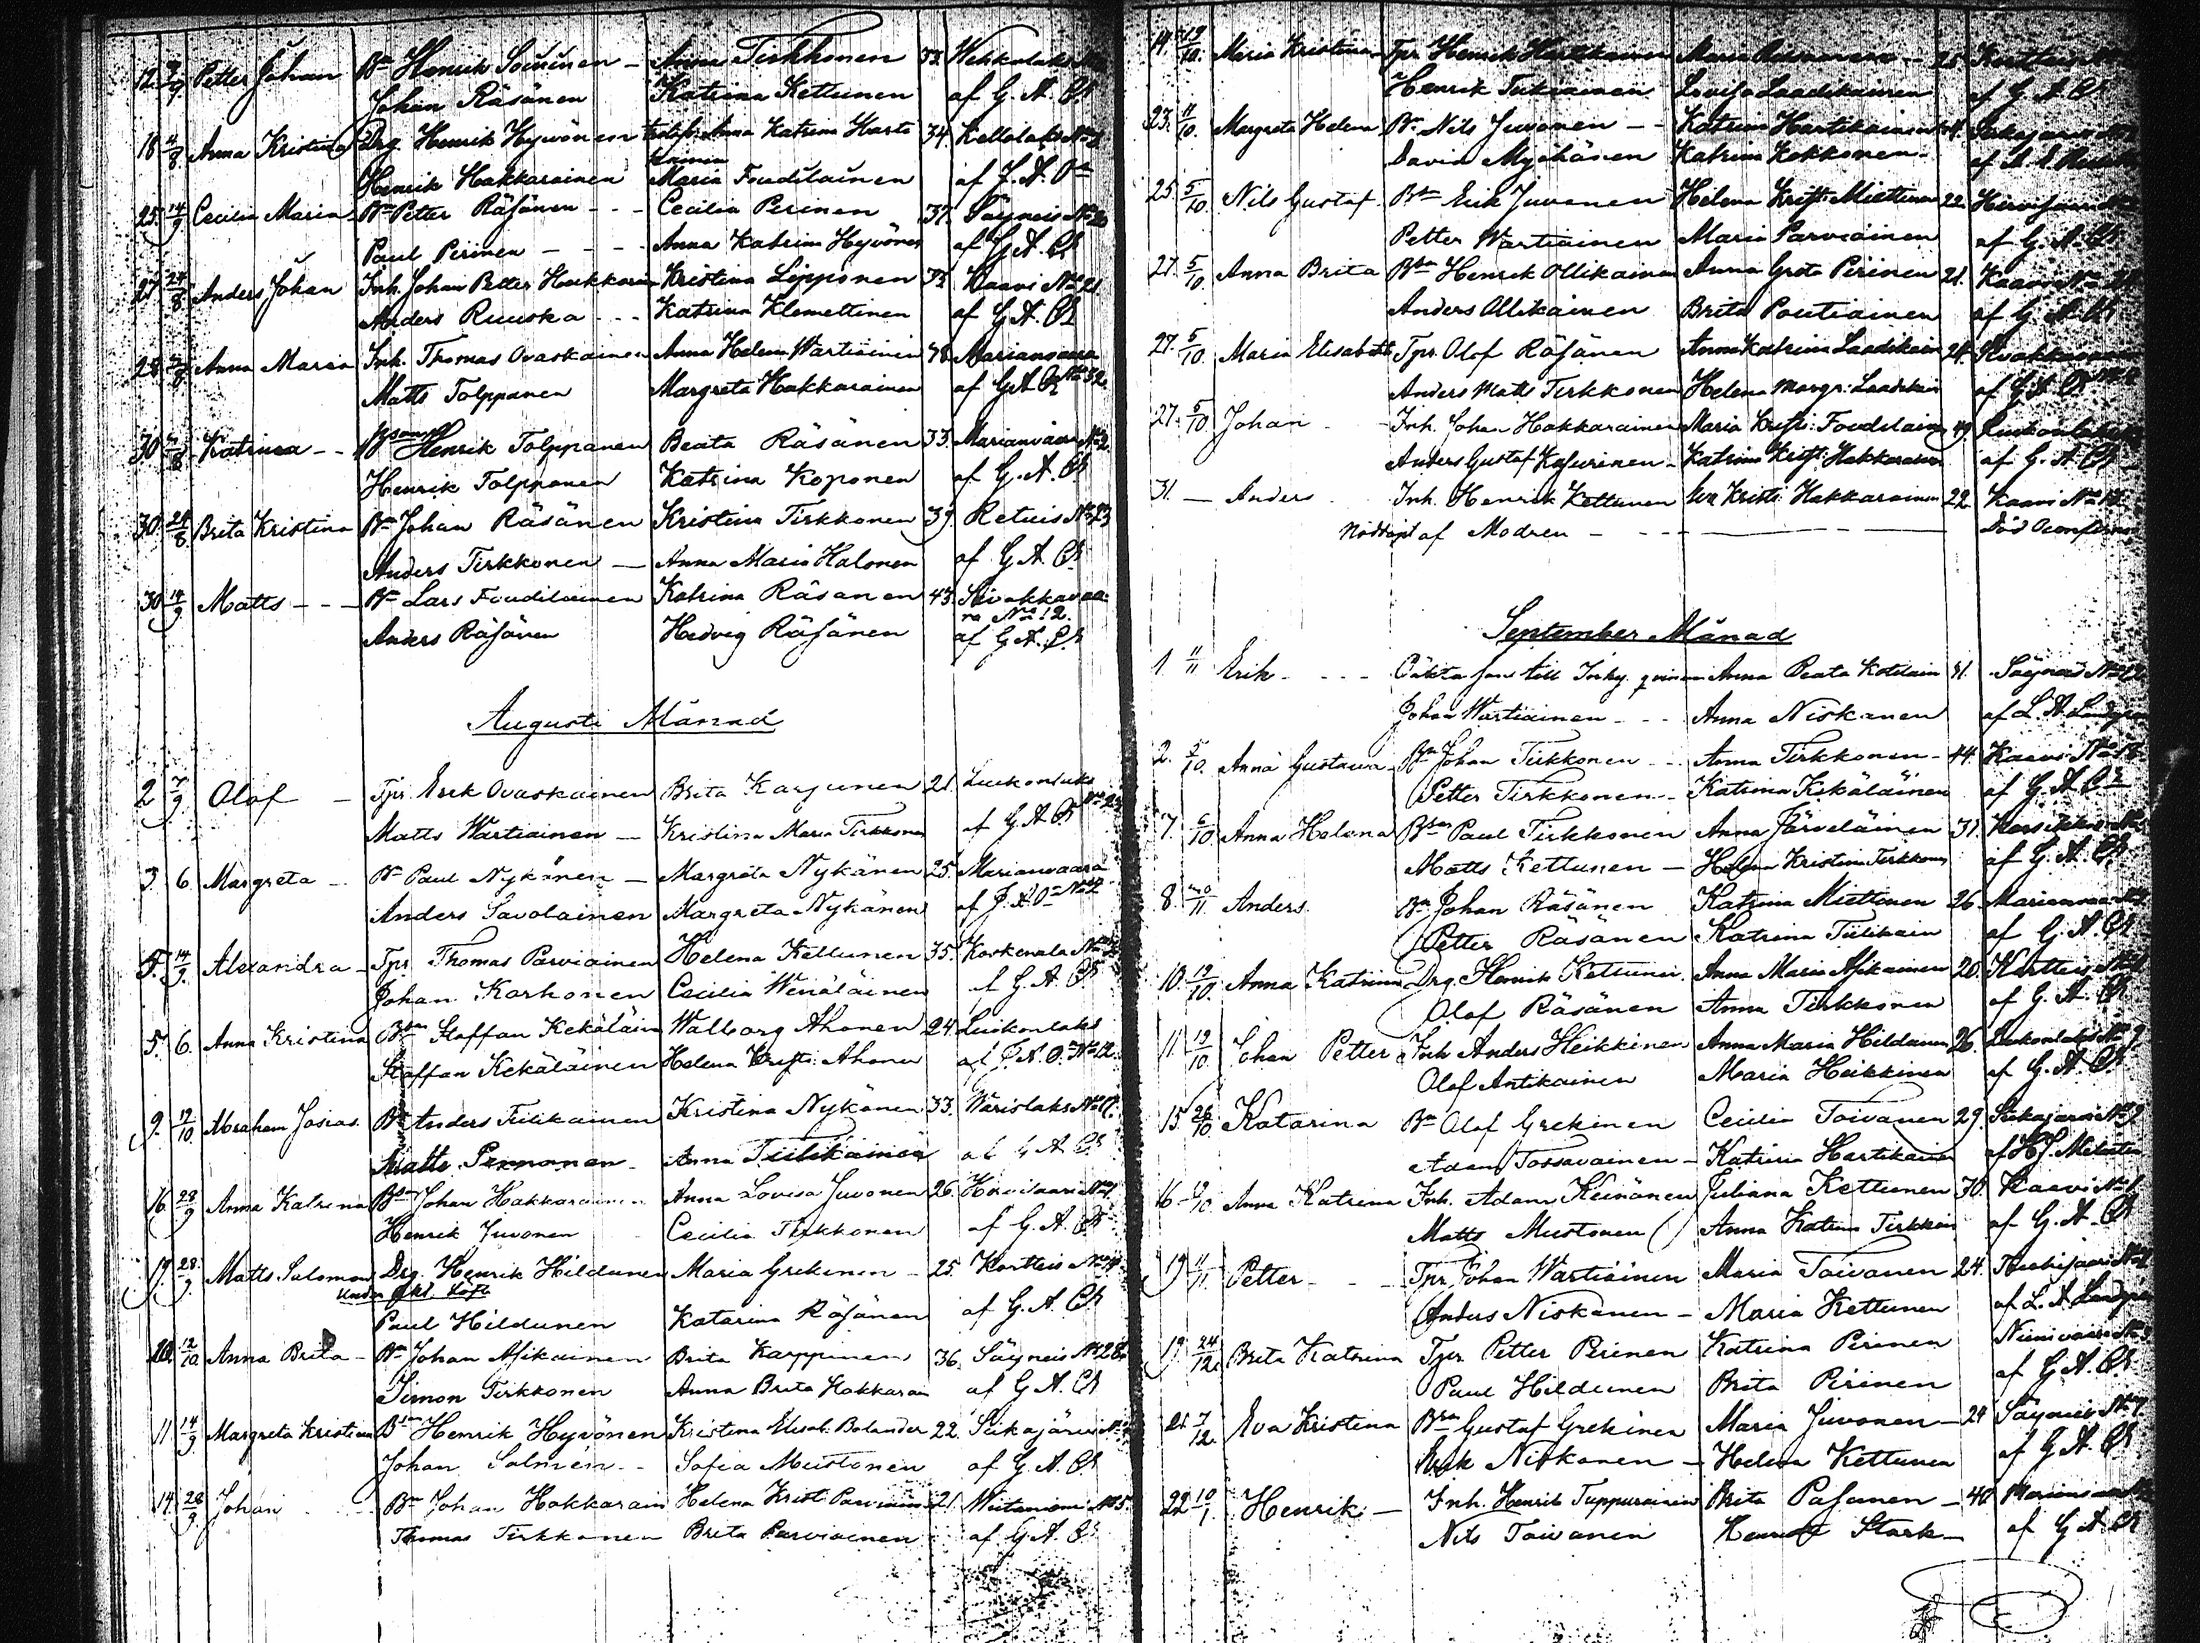 12 9/9 Petter Johan Bn Henrik Soininen - Anna Tirkkonen 33 Wehkalaks
Johan Räsänen Katrina Kettunen af G. A. Ch
18 4/8 Anna Kristina Drg. Henrik Hyvönen Anna Katrina Harti 34 Kettolaks No 2
kainen
Henrik Hakkarainen Maria Foudilainen af J. A. On
25 14/9 Cecilia Maria Bn Petter Räsänen - - Cecilia Perinen 37. Säyneis No 20
Paul Perinen - - - - Anna Katrina Hyvönen af G. A. Ch
27 24/8 Anders Johan Inh. Johan Petter Hakkarain Kristina Lipponen 33 Kaavi No 21
Anders Ruuska - - - Katrina Klemettinen af G. A. Ch
28 Anna Maria Inh. Thomas Ovaskainen Anna Helena Wartiainen 38 Marianvaara
Matts Tolppanen Margreta Hakkarainen af G A Ch No 32
30 Katrina - - Bn Henrik Tolppanen Beata Räsänen 33. Marianvaara No 2.
Henrik Tolppanen Katrina Koponen af G. A. Ch
30. 28/8 Brita Kristina Bn Johan Räsänen Kristina Tirkkonen 39 Retuis No 23
Anders Tirkkonen - Anna Maria Halonen af G A Ch
30 14/9 Matts - - - Bn Lars Foudilainen Katrina Räsänen 43. Sivakkavaa
ra No 12.
Anders Räsänen Hedvig Räsänen af G A. Ch
Augusti Månad
2 7/9 Olof - Tpr. Erik Ovaskainen Brita Karjunen 21. Luikonlaks
Matts Wartiainen - Kristina Maria Tirkkonen af G A Ch
3. 6. Margreta - Bn Paul Nykänen - Margreta Nykänen 25. Marianvaara
Anders Savolainen Margreta Nykänen af J. A. On No 4
5. 14/9. Alexandra - Tpr Thomas Parviainen Helena Kettunen 35. Koskenala No
Johan Korhonen Cecilia Wenäläinen af G. A. Ch
5. 6. Anna Kristina Bdn Staffan Kekäläin Walborg Ahonen 24 Luikonlaks
Staffan Kekäläinen Helena Kristi: Ahonen af J. A. On No 12.
9. 12/10 Abraham Josias. Bn Anders Tiilikainen Kristina Nykänen 33. Warislaks No 17.
Matts Pennanen - Anna Tiilikainen af G A Ch
16. 28/9 Anna Katrina Bdn Johan Hakkarainen Anna Lovisa Juvonen 26. Hirvisaari No 1.
Henrik Juvonen Cecilia Tirkkonen af G. A. Ch
19. 28/9. Matts Salomon Drg. Henrik Hildunen Maria Grekinen - 25. Kortteis No 4
Paul Hildunen Katarina Räsänen af G. A. Ch
20. 12/10 Anna Brita - Bn Johan Asikainen Brita Karppinen 36. Säyneis No 28.
Simon Tirkkonen Anna Brita Hakkarain af G A. Ch
11 14/9. Margreta Kristina Bdn Henrik Hyvönen Kristina Elisab. Bolander 22. Siikajärvi No
Johan Salmén - - Sofia Mustonen af G. A. Ch
14. 28/9 Johan Bn Johan Hakkarain Helena Krist. Parviain 21. Wiitaniemi No 5.
Thomas Tirkkonen Brita Parviainen af G. A. Ch
14. 19/10. Maria Kristina Tpr Henrik Hartikainen Maria 25 Kortteis
Henrik Tiikainen Lovisa Laadikainen af G A Ch
23. 11/10. Margreta Helena Bn Nils Juvonen - - Katrina Hartikainen Siikajärvi
David Myöhänen Katrina Kekkonen.
25 5/10. Nils Gustaf. Bdn Erik Juvonen Helena Krist: Miettinen 22. Hirvisaari
Petter Wartiainen Maria Parviainen af G. A. Ch
27. 5/10. Anna Brita Bdn Henrik Ollikainen Anna Greta Perinen 21. Kaavi No
Anders Ollikainen Brita Poutiainen af G. A. Ch
27. 5/10. Maria Elisabeth Tpr. Olof Räsänen Anna Katrina Laadikain 24. Sivakkavaara
Anders Matts Tirkkonen Helena Margr: Laadikain af G A Ch
27. 5/10 Johan - Inh. Johan Hakkarainen Maria Krist: Foudilain 49. Luikonlaks
Anders Gustaf Kasurinen - Katrina Krist: Hakkarain af G. A. Ch
31. - Anders. Inh. Henrik Kettunen Eva Kristi: Hakkarainen 22. Kaavi No 12.
Nöddöpt af Modren - - - Död
September Månad
1. 11/11 Erik - - - Oäkta son till Inhy. qvinnan Anna Beata Kotilain 41. Säyneis No 12
Johan Wartiainen - - Anna Niskanen af L. A. Landgren
2. 5/10. Anna Gustava - Bn Johan Tirkkonen - - Anna Tirkkonen - 44. Kaavi No 18.
Petter Tirkkonen - Katrina Kekäläinen af G. A Ch
7. 6/10 Anna Helena Bdn Paul Tirkkonen Anna Järveläinen 31. Kärsikko
Matts Kettunen - Helena Kristina Tirkkonen af G. A. Ch
8. /11. Anders. Bn Johan Räsänen Katrina Miettinen 26. Marianvaara
Petter Räsänen Katrina Tiilikain af G. A. Ch
10. 19/10. Anna Katrina Drg. Henrik Kettunen Anna Maria Asikainen 20. Kortteis No
Olof Räsänen Anna Tirkkonen af G. A. Ch
11. 19/10. Johan Petter Inh Anders Heikkinen Anna Maria Hildunen 26. Luikonlaks No 9
Olof Antikainen Maria Heikkinen af G. A. Ch
15 26/10. Katarina Bn Olof Grekinen Cecilia Toivanen 29. Siikajärvi No 9
Adam Tossavainen - Katrina Hartikainen af H J. Melartin
16 19/10. Anna Katrina Inh. Adam Keinänen Juliana Kettunen 30. Kaavi No 1.
Matts Mustonen Anna Katrina Tirkkon af G. A. Ch
19 11/11. Petter - - Tpr Johan Wartiainen Maria Toivanen 24.
Anders Niskanen - Maria Kettunen af L. A Landgren
19. 24/12. Brita Katrina Tpr. Petter Perinen Katrina Perinen Niinivaara No 3.
Paul Hildunen Brita Perinen af G A. Ch
21. 7/12. Eva Kristina Bdn Gustaf Grekinen Maria Juvonen - 24 Säyneis No 7.
Erik Niskanen - Helena Kettunen af G A. Ch
22 10/1. Henrik - Inh. Henrik Tuppurainen Brita Pasanen - 40. Marianvaara
Nils Toivanen Stark - af G A. Ch